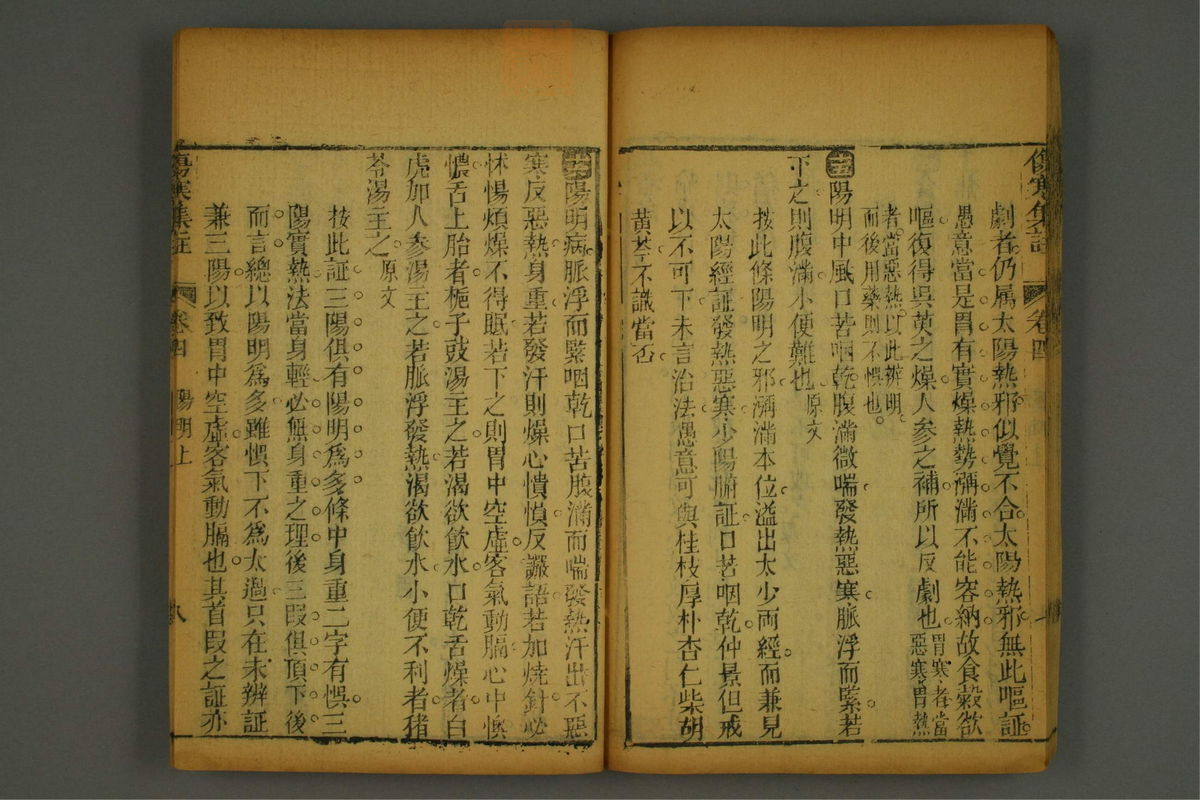 傷寒集註 卷四
劇者仍属太陽熱邪似覺不合太陽熱邪無此嘔証
愚意當是胃有實燥熱勢瀰滿不能容納故食穀欲
嘔復得吳萸之燥人參之補所以反劇也胃寒者當惡寒胃熱
者當惡熱以此辨明而後用藥則不悞也
十五陽明中風口苦咽乾腹滿微喘發熱惡寒脈浮而緊若
下之則腹滿小便難也原文
按此條陽明之邪瀰滿本位溢出太少兩經而兼見
太陽經証發熱惡寒少陽腑証口苦咽乾仲景但戒
以不可下未言治法愚意可與桂枝厚朴杏仁柴胡
黄芩不識當否
十六陽明病脈浮而緊咽乾口苦腹滿而喘發熱汗出不惡
寒反惡熱身重若發汗則燥心憒憒反讝語若加燒針必
怵惕煩燥不得眠若下之則胃中空虛客氣動膈心中懊
憹舌上胎者梔子豉湯主之若渴欲飲水口乾舌燥者白
虎加人參湯主之若脈浮發熱渴欲飲水小便不利者猪
苓湯主之原文
按此証三陽俱有陽明為多條中身重二字有悞三
陽實熱法當身輕必無身重之理後三叚俱頂下後
而言總以陽明為多雖悞下不為太過只在未辨証
兼三陽以致胃中空虛客氣動膈也其首叚之証亦
傷寒集註 卷四 陽明上 八